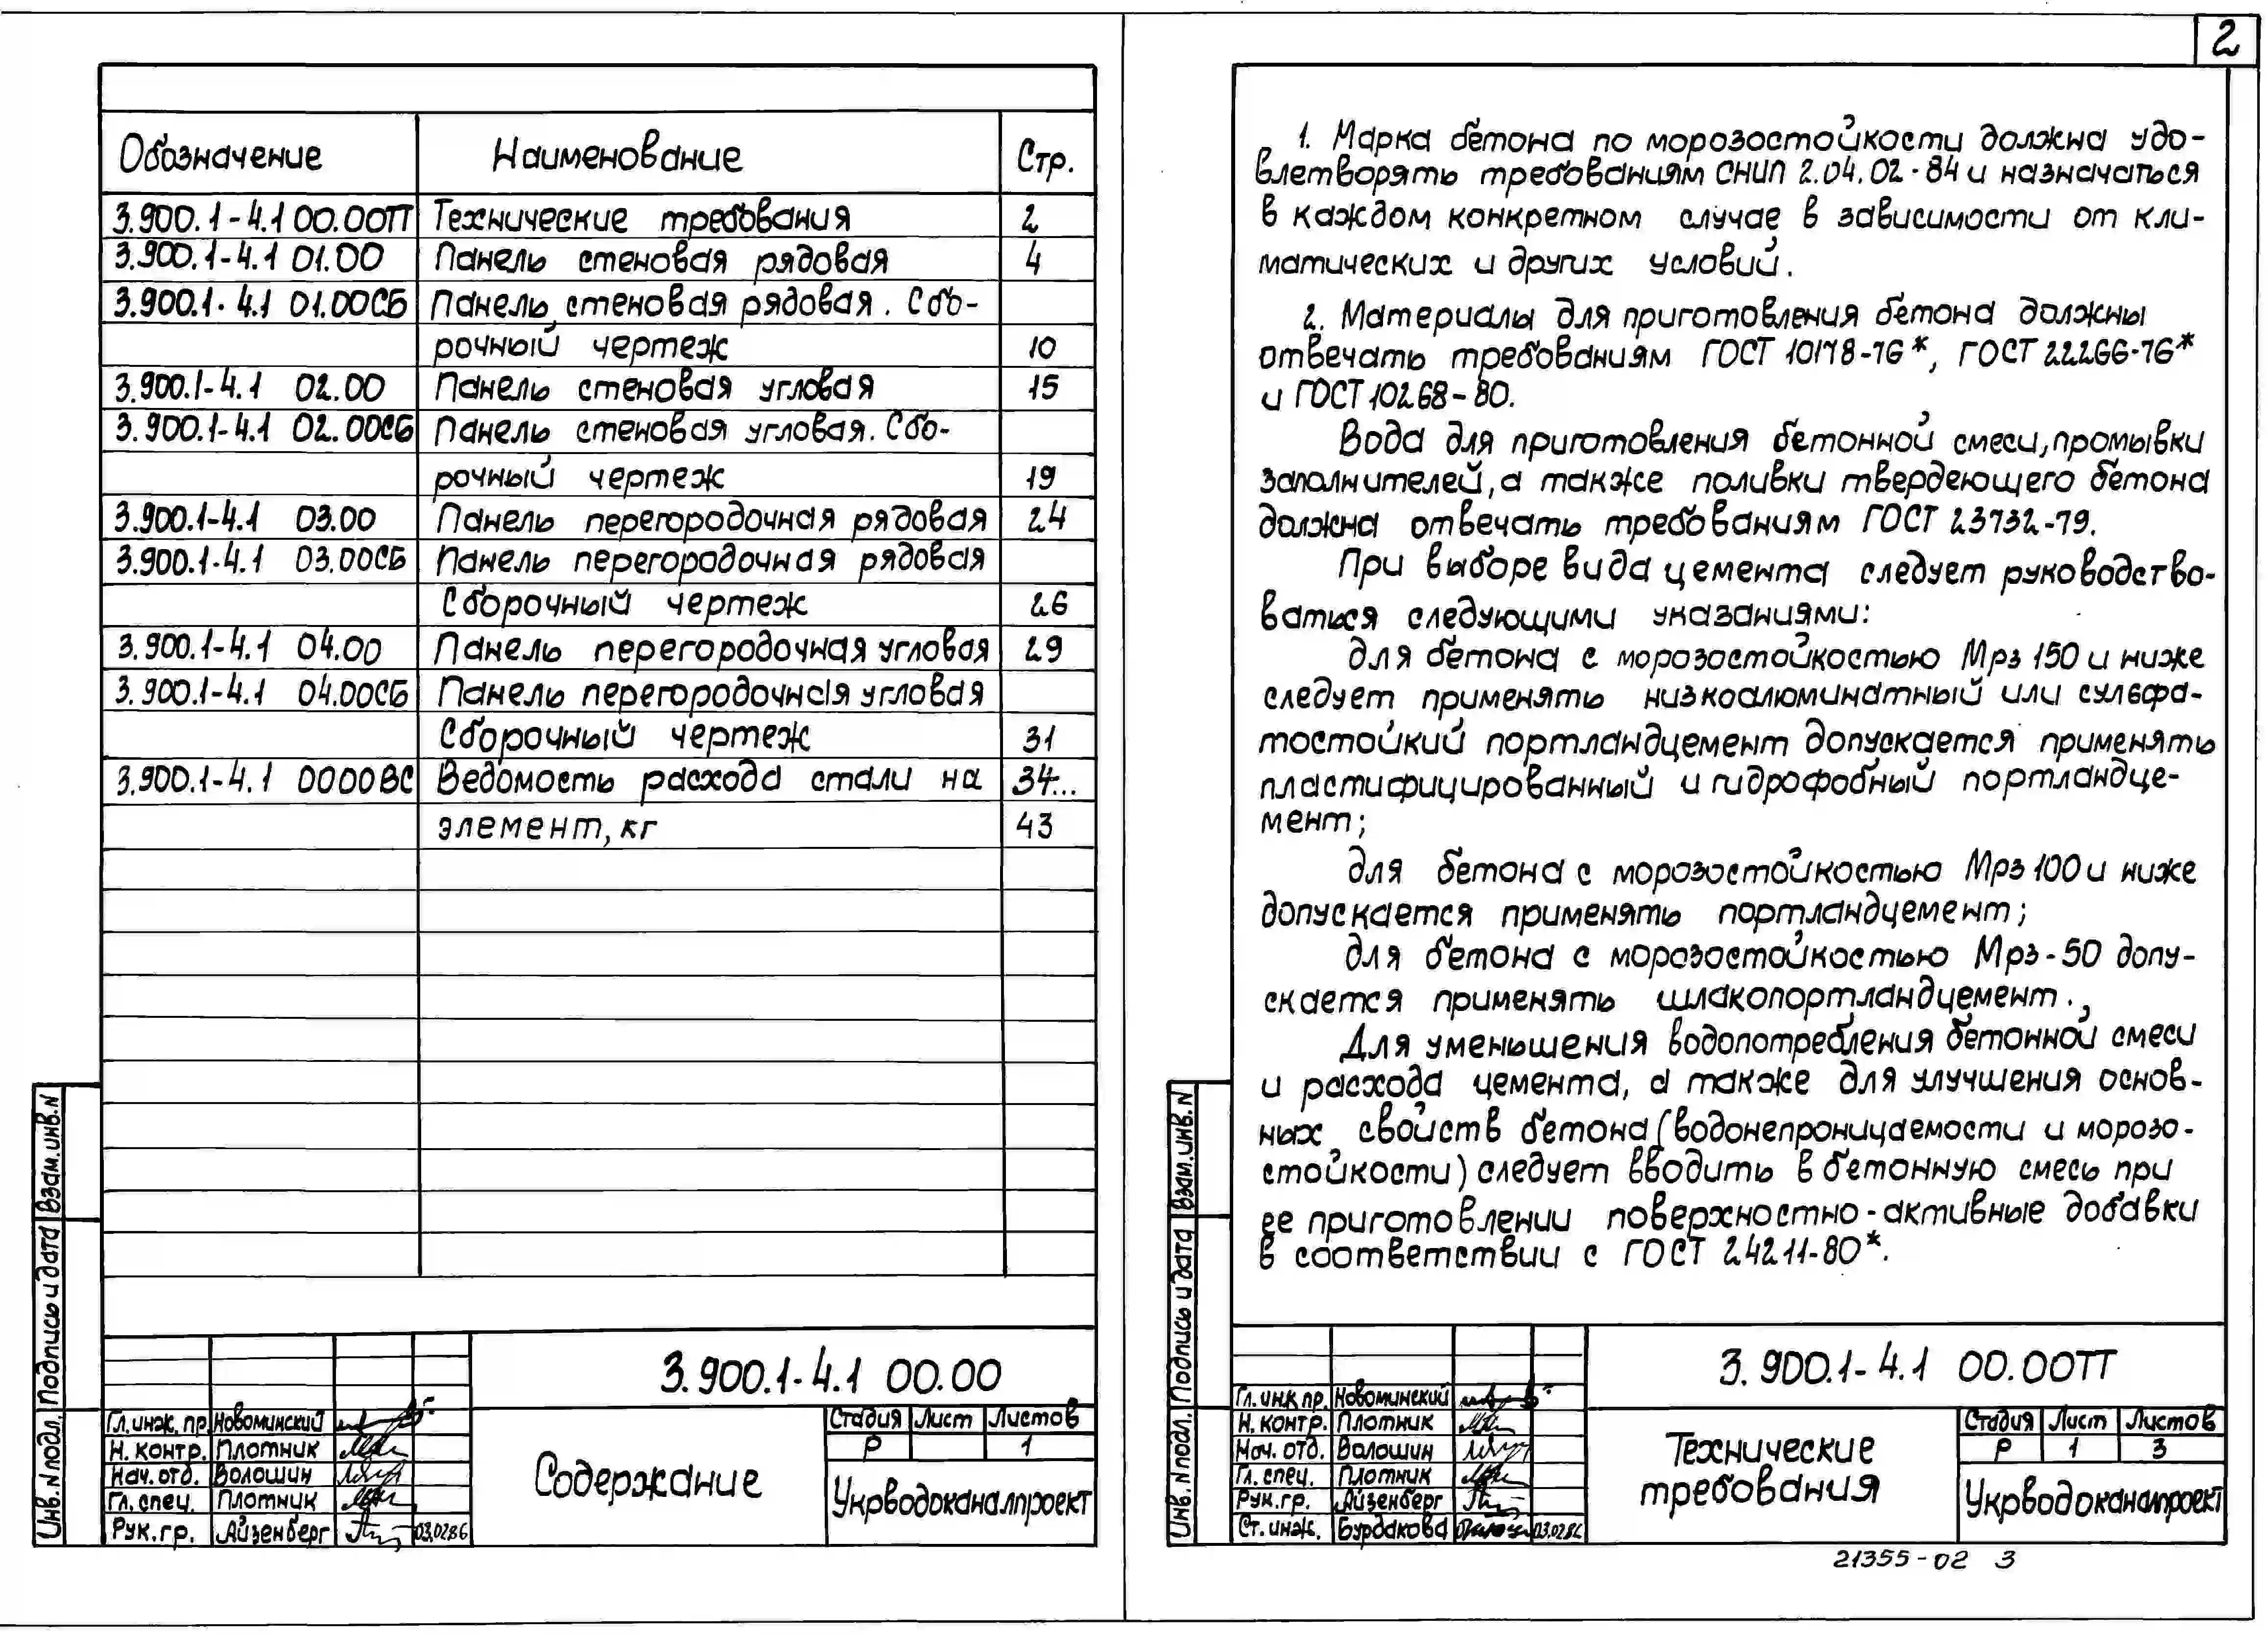 Обозначение Наименование Стр.
3.900.1-4.1 00.00ТТ Технические требования 2
3.900.1-4.1 01.00 Панель стеновая рядовая 4
3.900.1-4.1 01.00СБ Панель стеновая рядовая. Сбо-
рочный чертеж 10
3.900.1-4.1 02.00 Панель стеновая угловая 15
3.900.1-4.1 02.00СБ Панель стеновая угловая. Сбо-
рочный чертеж 19
3.900.1-4.1 03.00 Панель перегородочная рядовая 24
3.900.1-4.1 03.00СБ Панель перегородочная рядовая
Сборочный чертеж 26
3.900.1-4.1 04.00 Панель перегородочная угловая 29
3.900.1-4.1 04.00СБ Панель перегородочная угловая
Сборочный чертеж 31
3.900.1-4.1 0000ВС Ведомость расхода стали на 34...
элемент, кг 43
Взам.инв.N
Подпись и дата
Инв.N подл.
3.900.1-4.1 00.00
Гл.инж.пр. Новоминский
Н.контр. Плотник
Нач.отд. Волошин
Гл.спец. Плотник
Рук.гр. Айзенберг 03.02.86
Содержание
Стадия Лист Листов
Р 1
Укрводоканалпроект
2
1. Марка бетона по морозостойкости должна удо-
влетворять требованиям СНИП 2.04.02-84 и назначаться
в каждом конкретном случае в зависимости от кли-
матических и других условий.
2. Материалы для приготовления бетона должны
отвечать требованиям ГОСТ 10178-76*, ГОСТ 22266-76*
и ГОСТ 10268-80.
Вода для приготовления бетонной смеси, промывки
заполнителей, а также поливки твердеющего бетона
должна отвечать требованиям ГОСТ 23732-79.
При выборе вида цемента следует руководство-
ваться следующими указаниями:
для бетона с морозостойкостью Мрз 150 и ниже
следует применять низкоалюминатный или сульфа-
тостойкий портландцемент допускается применять
пластифицированный и гидрофобный портландце-
мент;
для бетона с морозостойкостью Мрз 100 и ниже
допускается применять портландцемент;
для бетона с морозостойкостью Мрз-50 допу-
скается применять шлакопортландцемент.
Для уменьшения водопотребления бетонной смеси
и расхода цемента, а также для улучшения основ-
ных свойств бетона (водонепроницаемости и морозо-
стойкости) следует вводить в бетонную смесь при
ее приготовлении поверхностно-активные добавки
в соответствии с ГОСТ 24211-80*.
Взам.инв.N
Подпись и дата
Инв.N подл.
3.900.1-4.1 00.00ТТ
Гл.инж.пр. Новоминский
Н.контр. Плотник
Нач.отд. Волошин
Гл.спец. Плотник
Рук.гр. Айзенберг
Ст.инж. Бурдакова 03.02.86
Технические
требования
Стадия Лист Листов
Р 1 3
Укрводоканалпроект
21355-02 3